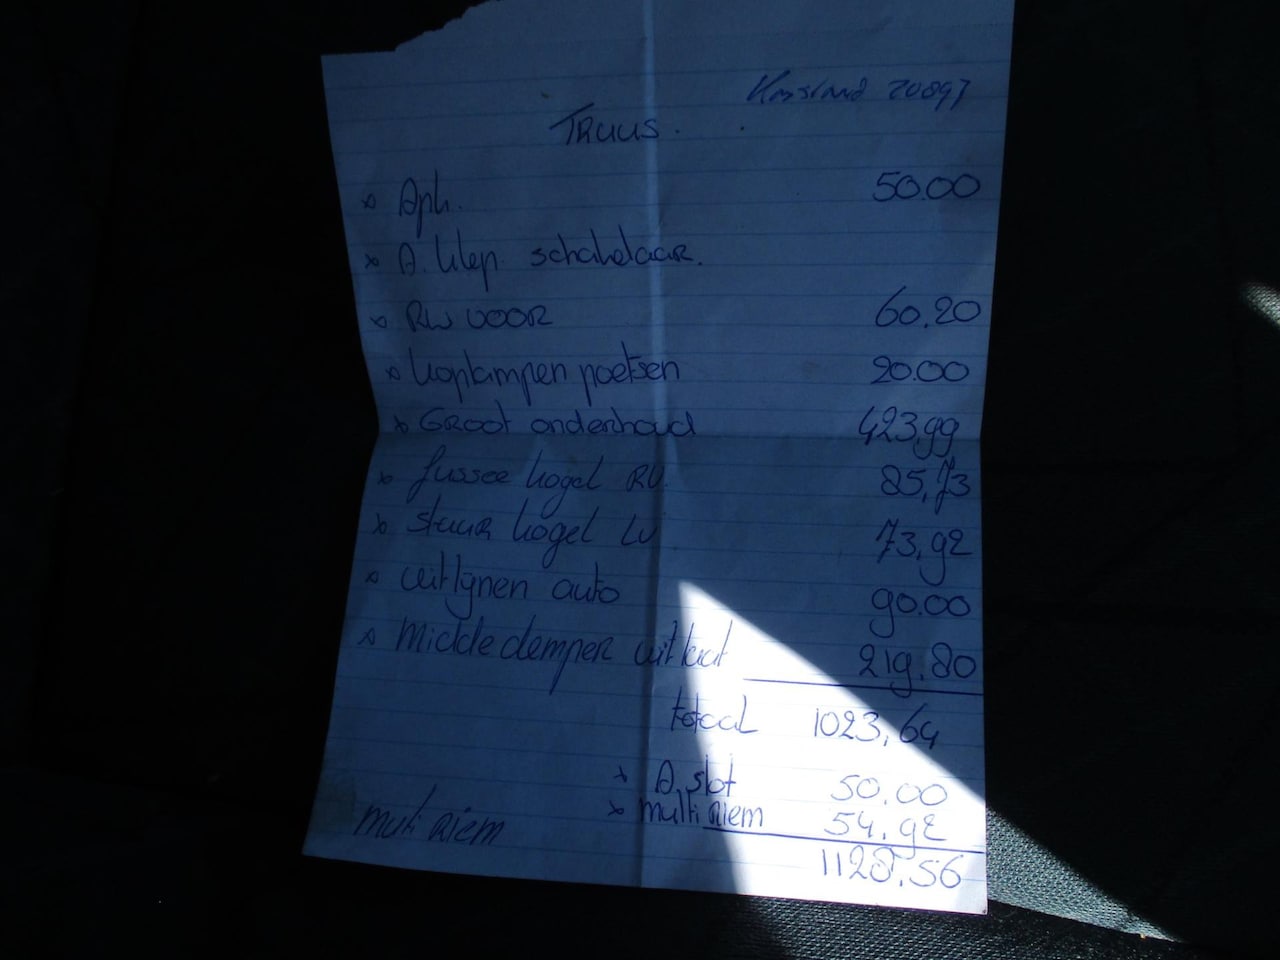 20897
TRUUS.
x Apk. 50.00
x A. klep schakelaar.
x RW VOOR 60.20
x koplampen poetsen 20.00
x Groot onderhoud 423,99
x fusee kogel RV. 85,73
x stuur kogel LV 73,92
x uitlijnen auto 90.00
x Middedemper uitlaat 219.80
totaal 1023,64
x A. slot 50.00
x multi Riem 54.92
muti Riem
1128,56